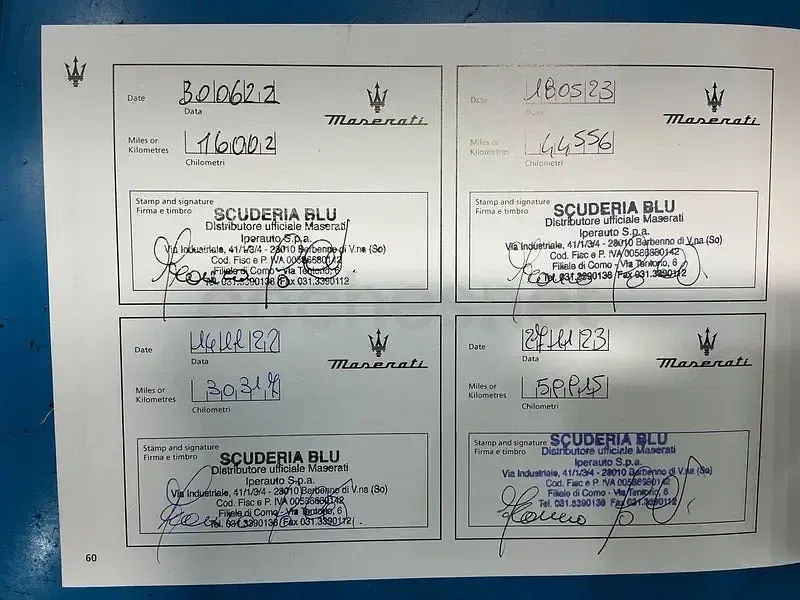 Date 300622
Data
Maserati
Miles or
Kilometres 16002
Chilometri
Stamp and signature
Firma e timbro
SCUDERIA BLU
Distributore ufficiale Maserati
Iperauto S.p.a.
Via Industriale, 41/1/3/4 - 23010 Berbenno di V.na (So)
Cod. Fisc e P. IVA 00586680142
Filiale di Como - Via Tentorio, 6
Tel. 031.3390138 Fax 031.3390112
Date 180523
Data
Maserati
Miles or
Kilometres 44556
Chilometri
Stamp and signature
Firma e timbro
SCUDERIA BLU
Distributore ufficiale Maserati
Iperauto S.p.a.
Via Industriale, 41/1/3/4 - 23010 Berbenno di V.na (So)
Cod. Fisc e P. IVA 00586680142
Filiale di Como - Via Tentorio, 6
Tel. 031.3390138 Fax 031.3390112
Date 141122
Data
Maserati
Miles or
Kilometres 30317
Chilometri
Stamp and signature
Firma e timbro
SCUDERIA BLU
Distributore ufficiale Maserati
Iperauto S.p.a.
Via Industriale, 41/1/3/4 - 23010 Berbenno di V.na (So)
Cod. Fisc e P. IVA 00586680142
Filiale di Como - Via Tentorio, 6
Tel. 031.3390138 Fax 031.3390112
Date 271123
Data
Maserati
Miles or
Kilometres
Chilometri
Stamp and signature
Firma e timbro
SCUDERIA BLU
Distributore ufficiale Maserati
Iperauto S.p.a.
Via Industriale, 41/1/3/4 - 23010 Berbenno di V.na (So)
Cod. Fisc e P. IVA 00586680142
Filiale di Como - Via Tentorio, 6
Tel. 031.3390138 Fax 031.3390112
60